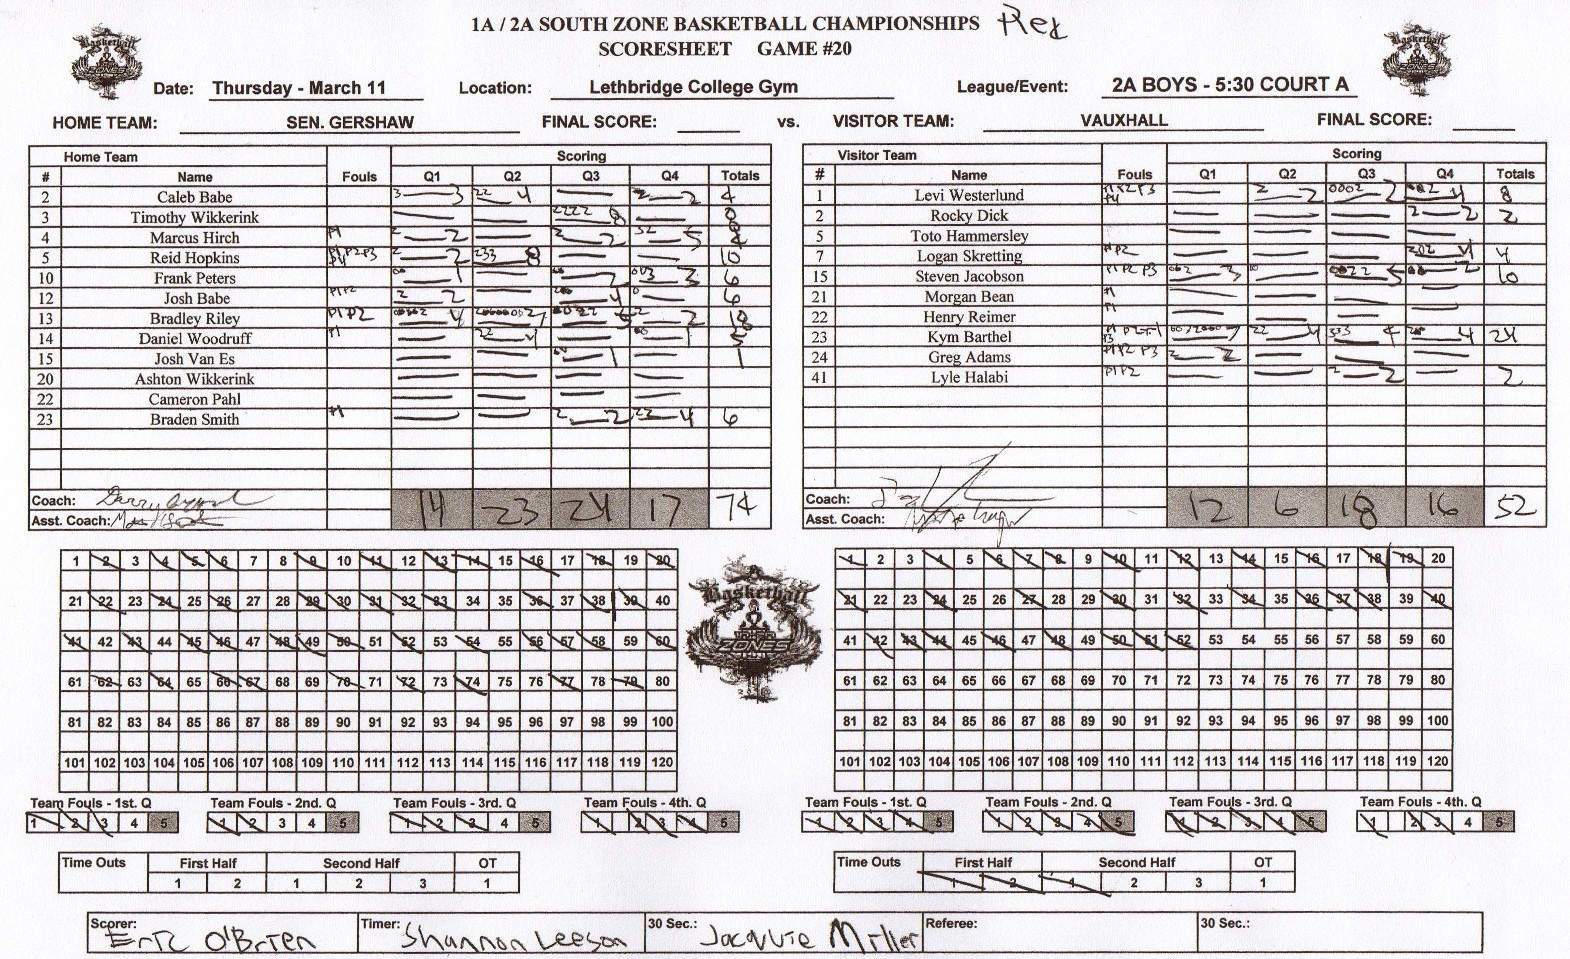 1A / 2A SOUTH ZONE BASKETBALL CHAMPIONSHIPS
SCORESHEET GAME #20
Date: Thursday - March 11 Location: Lethbridge College Gym League/Event: 2A BOYS - 5:30 COURT A
HOME TEAM: SEN. GERSHAW FINAL SCORE: vs. VISITOR TEAM: VAUXHALL FINAL SCORE:
Home Team Fouls Scoring
# Name Q1 Q2 Q3 Q4 Totals
2 Caleb Babe 3 3 22 4 2 2
3 Timothy Wikkerink 2222 8 8
4 Marcus Hirch P1 2 2 2 2 32 5
5 Reid Hopkins P1 P2 P3 P4 2 2 233 8 10
10 Frank Peters 1 2 003 3 6
12 Josh Babe P1 P2 2 2 4 0 6
13 Bradley Riley P1 P2 4 7 5 2 2 18
14 Daniel Woodruff P1 22 4 00 1 5
15 Josh Van Es 1 1
20 Ashton Wikkerink
22 Cameron Pahl
23 Braden Smith P1 2 2 22 4 6
Coach:
Asst. Coach:
14 23 24 17 74
Visitor Team Fouls Scoring
# Name Q1 Q2 Q3 Q4 Totals
1 Levi Westerlund P1 P2 P3 P4 2 2 0002 2 4 8
2 Rocky Dick 2 2 2
5 Toto Hammersley
7 Logan Skretting P1 P2 202 4 4
15 Steven Jacobson P1 P2 P3 002 3 0022 5 2 10
21 Morgan Bean P1
22 Henry Reimer P1
23 Kym Barthel 7 22 4 4 24
24 Greg Adams P1 P2 P3 2 2
41 Lyle Halabi P1 P2 2 2 2
Coach:
Asst. Coach:
12 6 18 16 52
1 2 3 4 5 6 7 8 9 10 11 12 13 14 15 16 17 18 19 20
21 22 23 24 25 26 27 28 29 30 31 32 33 34 35 36 37 38 39 40
41 42 43 44 45 46 47 48 49 50 51 52 53 54 55 56 57 58 59 60
61 62 63 64 65 66 67 68 69 70 71 72 73 74 75 76 77 78 79 80
81 82 83 84 85 86 87 88 89 90 91 92 93 94 95 96 97 98 99 100
101 102 103 104 105 106 107 108 109 110 111 112 113 114 115 116 117 118 119 120
Team Fouls - 1st. Q Team Fouls - 2nd. Q Team Fouls - 3rd. Q Team Fouls - 4th. Q
1 2 3 4 5 1 2 3 4 5 1 2 3 4 5 1 2 3 4 5
Time Outs First Half Second Half OT
1 2 1 2 3 1
Basketball
ZONES
1 2 3 4 5 6 7 8 9 10 11 12 13 14 15 16 17 18 19 20
21 22 23 24 25 26 27 28 29 30 31 32 33 34 35 36 37 38 39 40
41 42 43 44 45 46 47 48 49 50 51 52 53 54 55 56 57 58 59 60
61 62 63 64 65 66 67 68 69 70 71 72 73 74 75 76 77 78 79 80
81 82 83 84 85 86 87 88 89 90 91 92 93 94 95 96 97 98 99 100
101 102 103 104 105 106 107 108 109 110 111 112 113 114 115 116 117 118 119 120
Team Fouls - 1st. Q Team Fouls - 2nd. Q Team Fouls - 3rd. Q Team Fouls - 4th. Q
1 2 3 4 5 1 2 3 4 5 1 2 3 4 5 1 2 3 4 5
Time Outs First Half Second Half OT
1 2 1 2 3 1
Scorer: Eric O'Brien Timer: Shannon Leeson 30 Sec.: Jacquie Miller Referee: 30 Sec.: